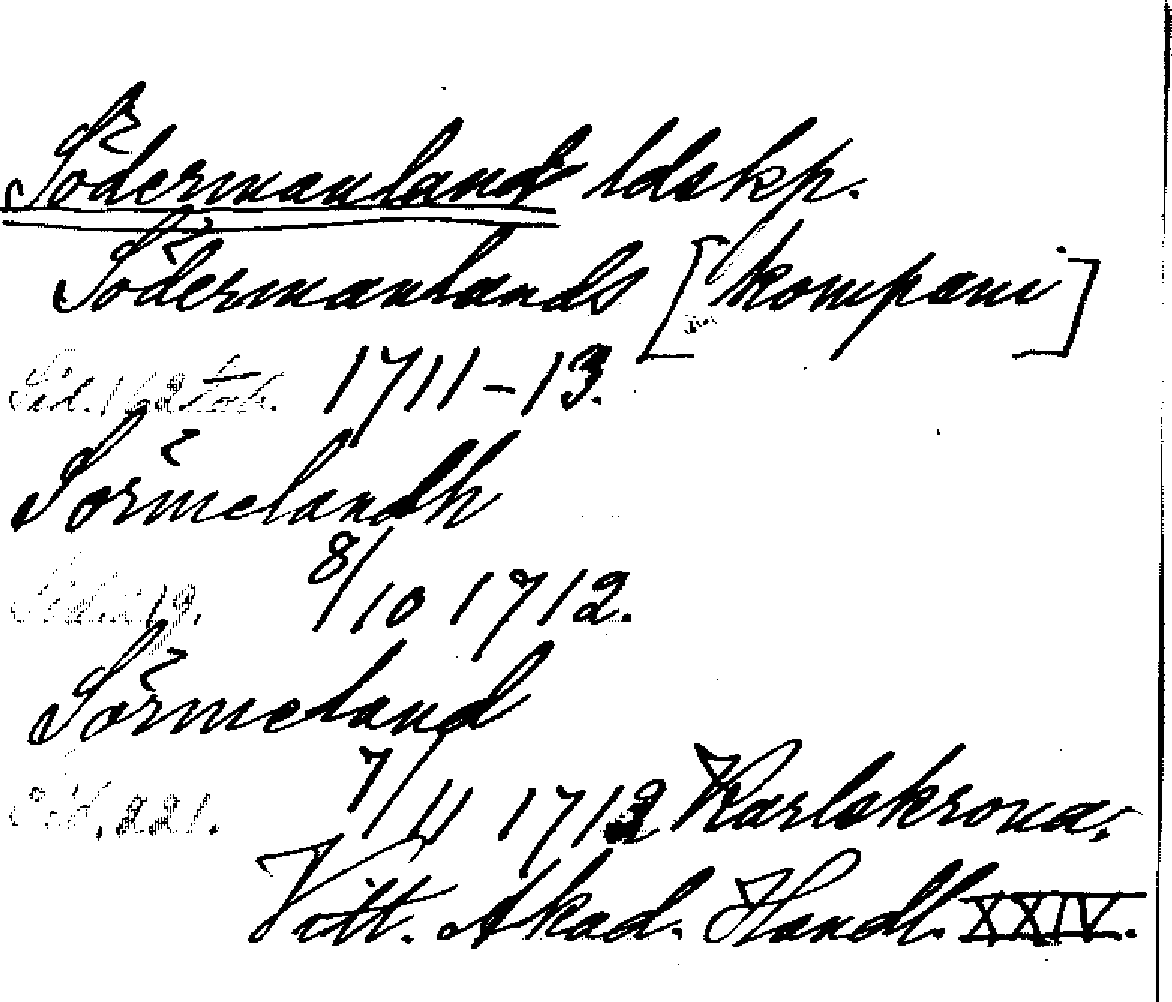 Södermanland ldskp.
Södermanlands [kompani]
Sid. 162 tab. 1711-13.
Sörmelandh
Sidan 19. 8/10 1712.
Sörmeland
Sid. 221. 7/11 1712 Karlskrona,
Vitt. Akad. Handl. XXIV.